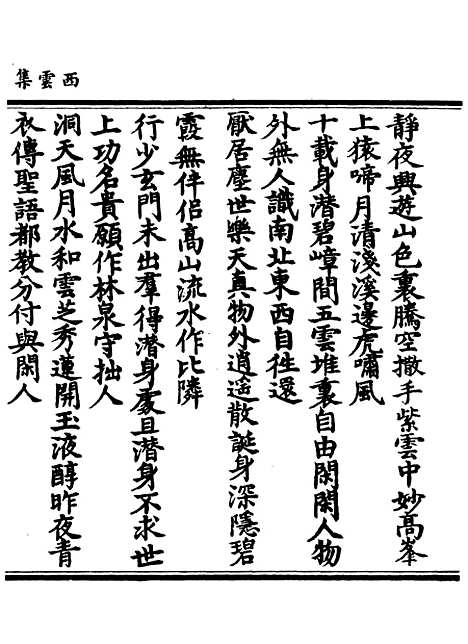 西雲集
靜夜興遊山色裏騰空撒手紫雲中妙高峯
上猿啼月清淺溪邊虎嘯風
十載身潛碧嶂間五雲堆裏自由閑閑人物
外無人識南北東西自徃還
厭居塵世樂天真物外逍遥散誕身深隱碧
霞無伴侣高山流水作比隣
行少玄門未出羣得潛身處且潛身不求世
上功名貴願作林泉守拙人
洞天風月水和雲芝秀蓮開玉液醇昨夜青
衣傳聖語都教分付與閑人